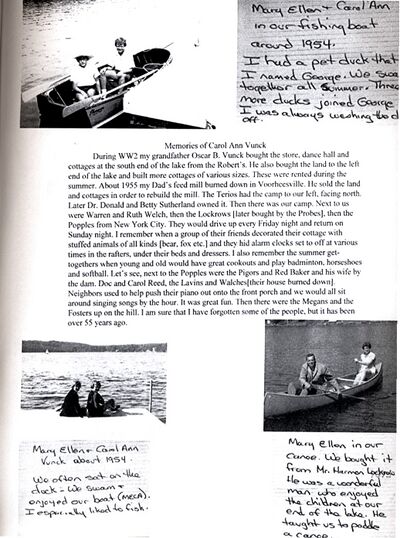 Mary Ellen + Carol Ann
in our fishing boat
around 1954.
I had a pet duck that
I named George. We swam
together all summer. Three
more ducks joined George
I was always washing the d
off.
Memories of Carol Ann Vunck
During WW2 my grandfather Oscar B. Vunck bought the store, dance hall and
cottages at the south end of the lake from the Robert's. He also bought the land to the left
end of the lake and built more cottages of various sizes. These were rented during the
summer. About 1955 my Dad's feed mill burned down in Voorheesville. He sold the land
and cottages in order to rebuild the mill. The Terios had the camp to our left, facing north.
Later Dr. Donald and Betty Sutherland owned it. Then there was our camp. Next to us
were Warren and Ruth Welch, then the Lockrows [later bought by the Probes], then the
Popples from New York City. They would drive up every Friday night and return on
Sunday night. I remember when a group of their friends decorated their cottage with
stuffed animals of all kinds [bear, fox etc.] and they hid alarm clocks set to off at various
times in the rafters, under their beds and dressers. I also remember the summer get-
togethers when young and old would have great cookouts and play badminton, horseshoes
and softball. Let's see, next to the Popples were the Pigors and Red Baker and his wife by
the dam. Doc and Carol Reed, the Lavins and Walches[their house burned down].
Neighbors used to help push their piano out onto the front porch and we would all sit
around singing songs by the hour. It was great fun. Then there were the Megans and the
Fosters up on the hill. I am sure that I have forgotten some of the people, but it has been
over 55 years ago.
Mary Ellen + Carol Ann
Vunck about 1954.
We often sat on the
dock - We swam +
enjoyed our boat (MECA).
I especially liked to fish.
Mary Ellen in our
canoe. We bought it
from Mr. Harmon Lockrow
He was a wonderful
man who enjoyed
the children at our
end of the lake. He
taught us to paddle
a canoe.